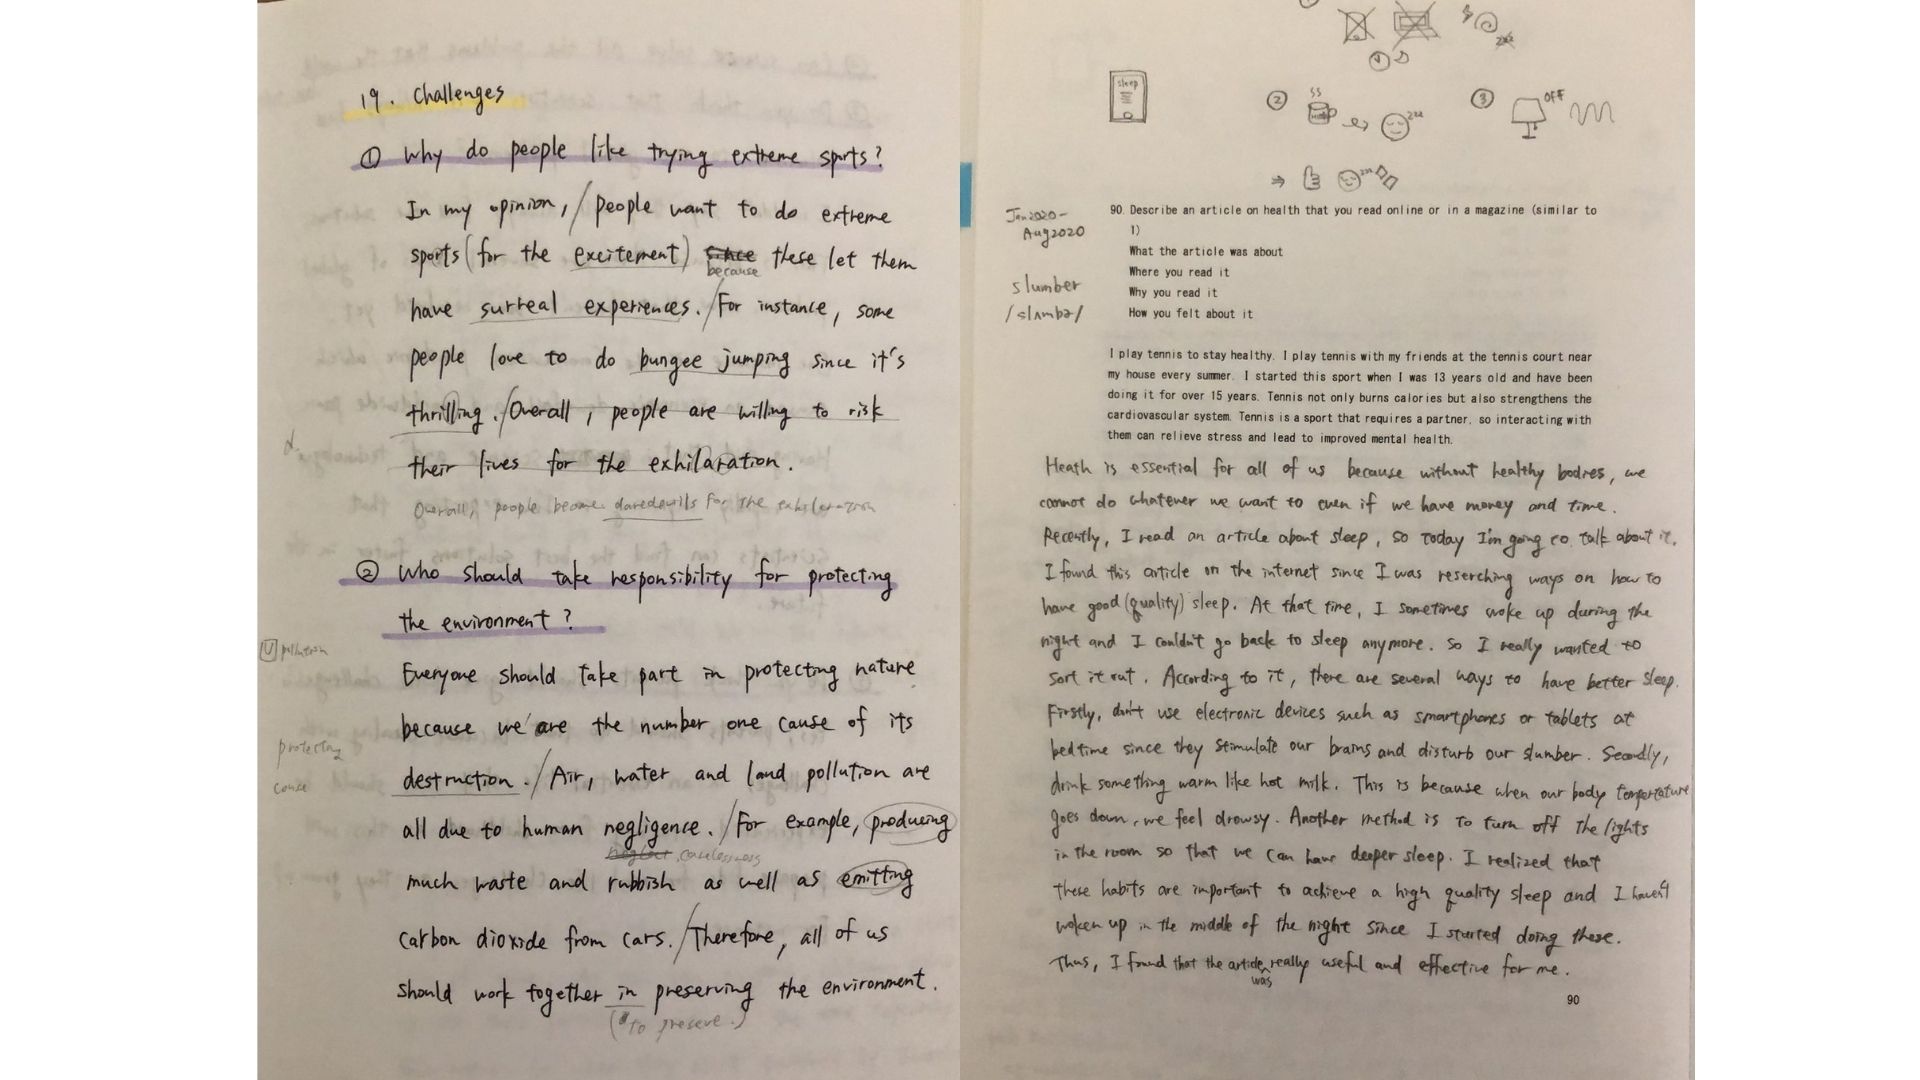 19. Challenges
① Why do people like trying extreme sports?
In my opinion, / people want to do extreme
sports (for the excitement) since these let them
because
have surreal experiences. / For instance, some
people love to do bungee jumping since it's
thrilling. / Overall, people are willing to risk
their lives for the exhilaration.
Overall, people become daredevils for the exhilaration
② Who should take responsibility for protecting
the environment?
U pollution
Everyone should take part in protecting nature
because we are the number one cause of its
protecting
destruction. / Air, water and land pollution are
cause
all due to human negligence. / For example, producing
neglect, carelessness
much waste and rubbish as well as emitting
carbon dioxide from cars. / Therefore, all of us
should work together in preserving the environment.
(to preseve.)
zzz
sleep
② zzz
③ OFF
⇒ zzz
Jan2020-
Aug2020
90. Describe an article on health that you read online or in a magazine (similar to
1)
What the article was about
Where you read it
Why you read it
How you felt about it
slumber
/slʌmbə/
I play tennis to stay healthy. I play tennis with my friends at the tennis court near
my house every summer. I started this sport when I was 13 years old and have been
doing it for over 15 years. Tennis not only burns calories but also strengthens the
cardiovascular system. Tennis is a sport that requires a partner, so interacting with
them can relieve stress and lead to improved mental health.
Heath is essential for all of us because without healthy bodies, we
cannot do whatever we want to even if we have money and time.
Recently, I read an article about sleep, so today I'm going to talk about it.
I found this article on the internet since I was reserching ways on how to
have good (quality) sleep. At that time, I sometimes woke up during the
night and I couldn't go back to sleep anymore. So I really wanted to
sort it out. According to it, there are several ways to have better sleep.
Firstly, don't use electronic devices such as smartphones or tablets at
bedtime since they stimulate our brains and disturb our slumber. Secondly,
drink something warm like hot milk. This is because when our body temperature
goes down, we feel drowsy. Another method is to turn off the lights
in the room so that we can have deeper sleep. I realized that
these habits are important to achieve a high quality sleep and I haven't
woken up in the middle of the night since I started doing these.
Thus, I found that the article really useful and effective for me.
was
90